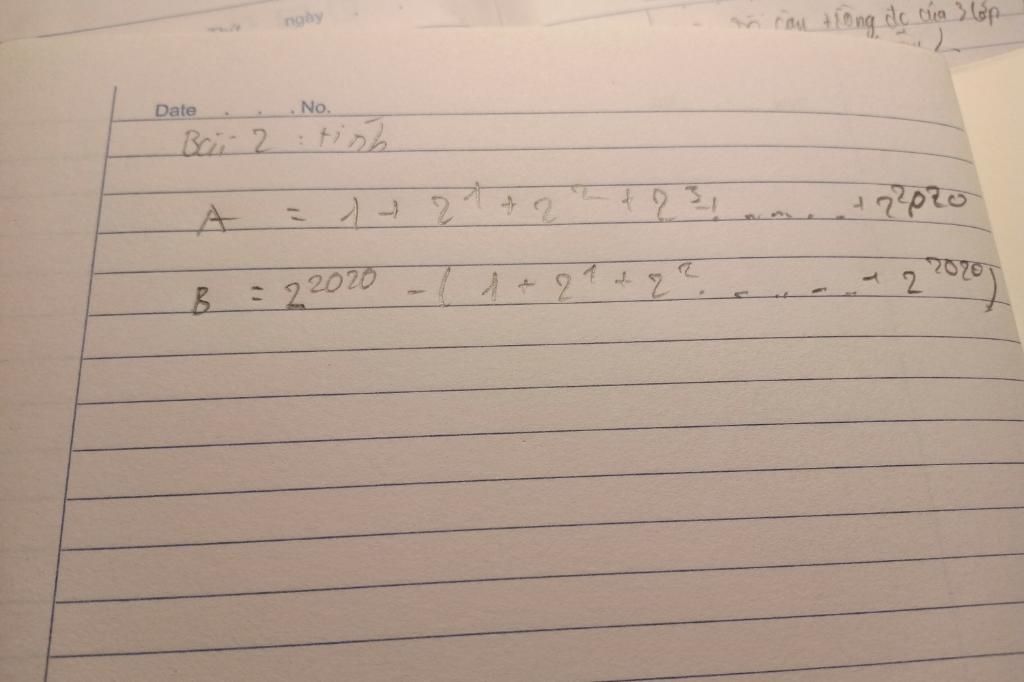 ngày
cầu trồng đc của 3 lớp
Date . . . No.
Bài 2 : tính
A = 1 + 2¹ + 2² + 2³ + ........ + 2²⁰²⁰
B = 2²⁰²⁰ - ( 1 + 2¹ + 2² ........ + 2²⁰²⁰)